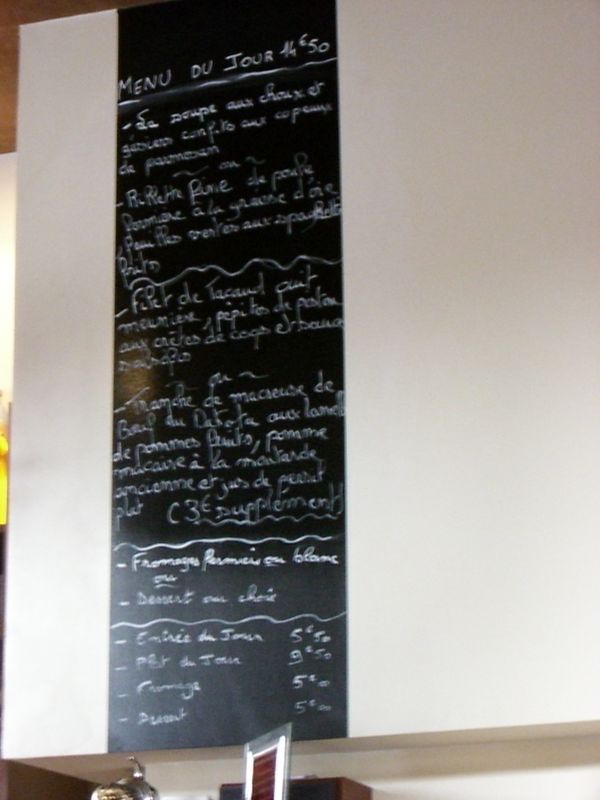 MENU DU JOUR 14€50
- La soupe aux choux et
gésiers confits aux copeaux
de parmesan
~ ou ~
- Rillette fine de poule
fermière à la graisse d'oie
feuilles vertes aux spaghettis
frits
- Filet de Tacaud cuit
meunière, pépites de
aux crêtes de coqs et
~ ou ~
- Tranche de macreuse de
Bœuf du Dakota aux lamelles
de pommes fruits, pomme
macaire à la moutarde
ancienne et jus de persil
plat (3€ supplément)
- Fromages fermiers ou blanc
ou
- Dessert au choix
- Entrée du Jour 5€50
- Plat du Jour 9€50
- Fromage 5€00
- Dessert 5€00